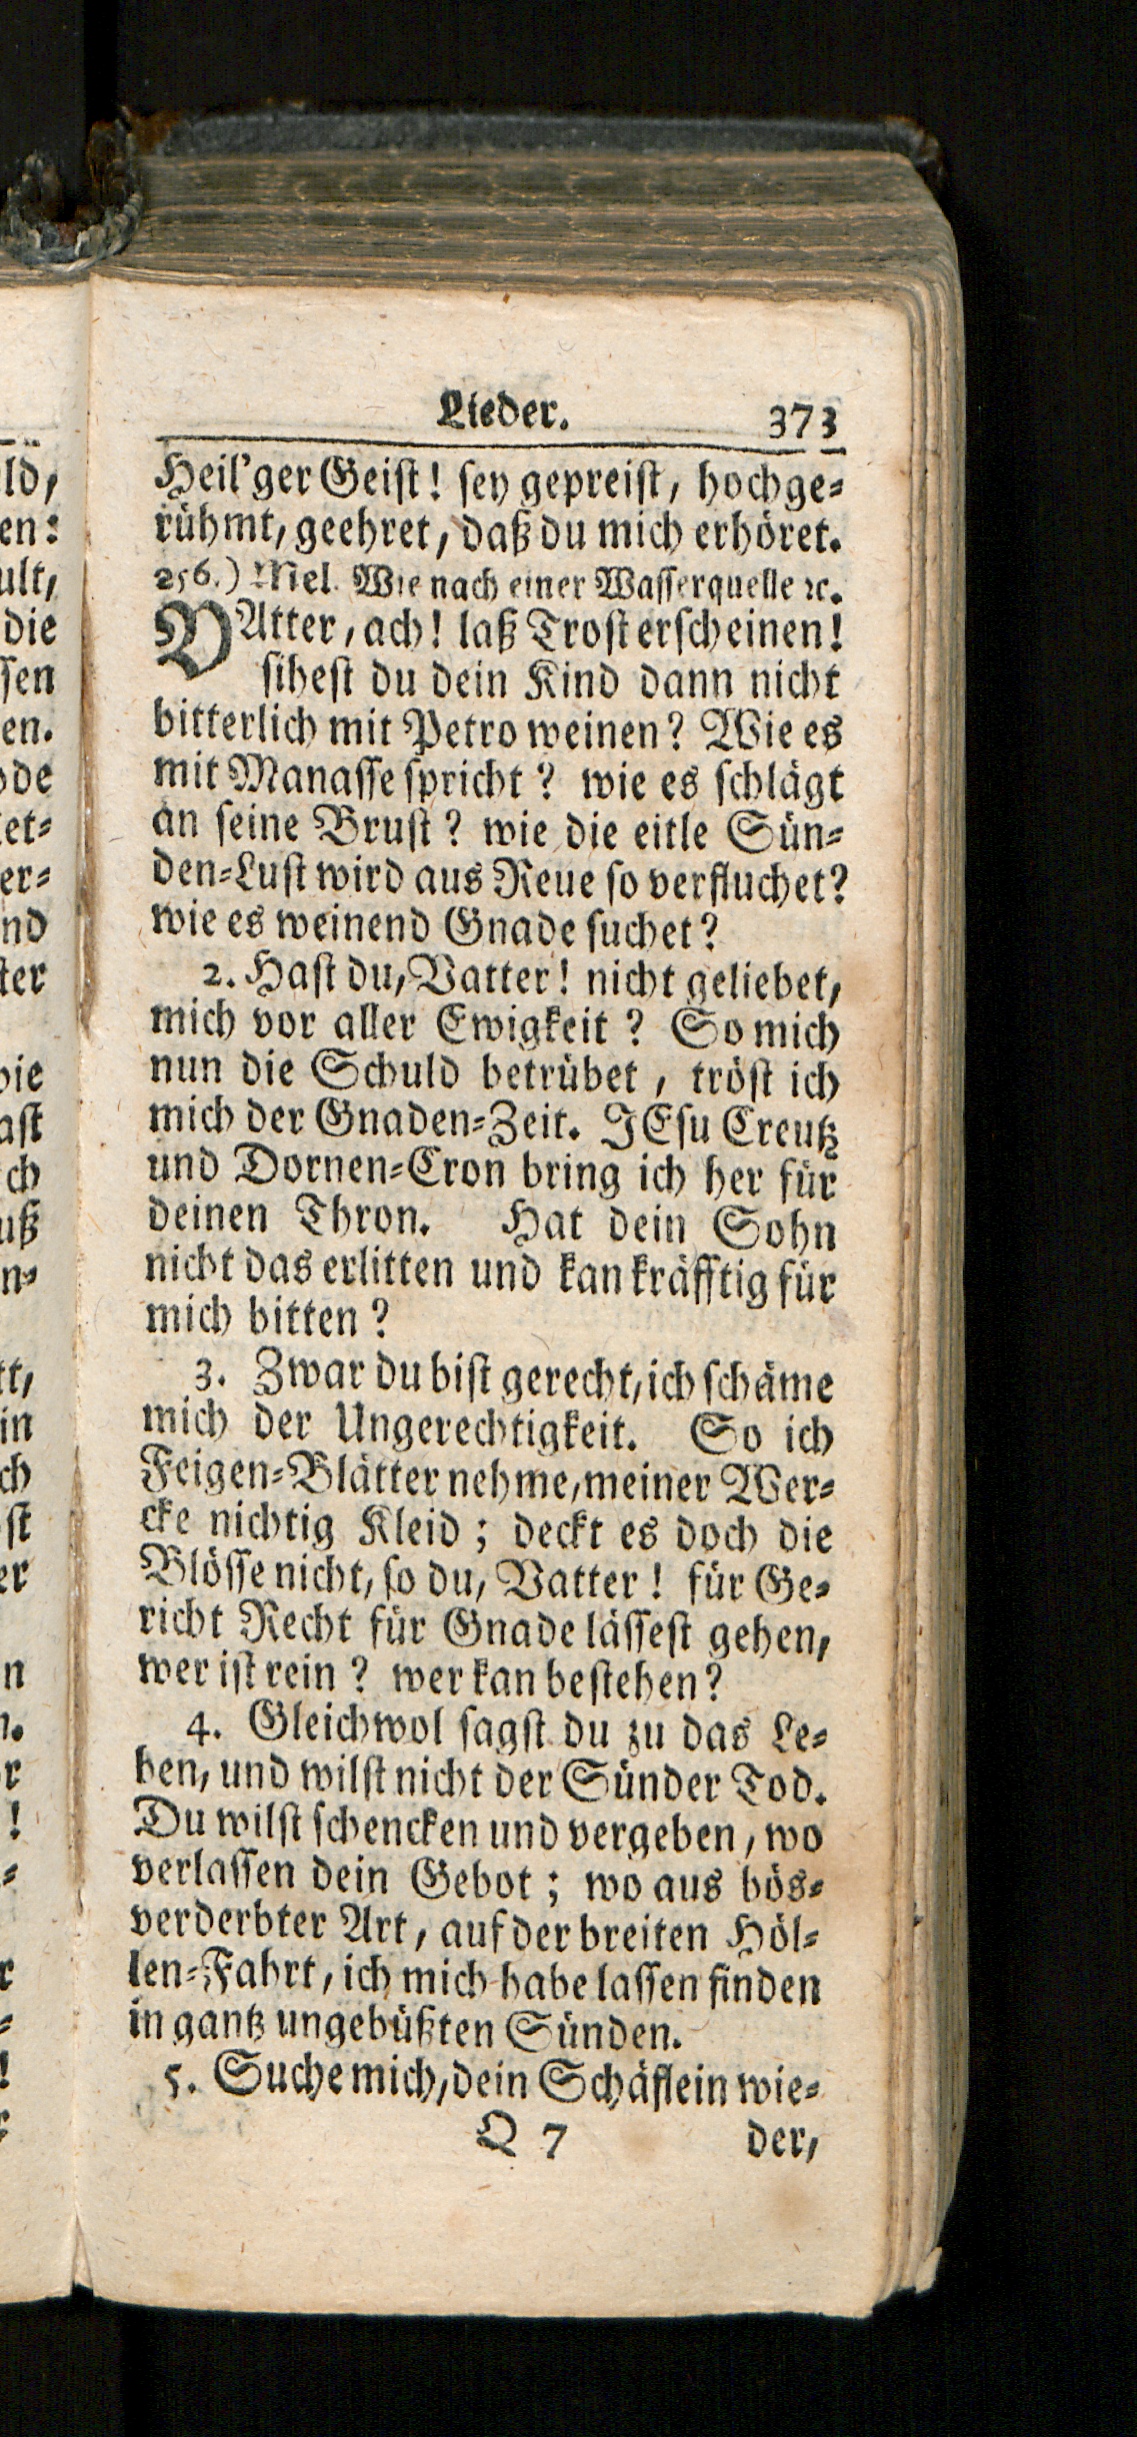 Lieder. 373
Heil'ger Geist! sey gepreist, hochge-
rühmt, geehret, daß du mich erhöret.
256.) Mel. Wie nach einer Wasserquelle ꝛc.
VAtter, ach! laß Trost erscheinen!
sihest du dein Kind dann nicht
bitterlich mit Petro weinen? Wie es
mit Manasse spricht? wie es schlägt
an seine Brust? wie die eitle Sün-
den-Lust wird aus Reue so verfluchet?
wie es weinend Gnade suchet?
2. Hast du, Vatter! nicht geliebet,
mich vor aller Ewigkeit? So mich
nun die Schuld betrübet, tröst ich
mich der Gnaden-Zeit. JEsu Creutz
und Dornen-Cron bring ich her für
deinen Thron. Hat dein Sohn
nicht das erlitten und kan kräfftig für
mich bitten?
3. Zwar du bist gerecht, ich schäme
mich der Ungerechtigkeit. So ich
Feigen-Blätter nehme, meiner Wer-
cke nichtig Kleid; deckt es doch die
Blösse nicht, so du, Vatter! für Ge-
richt Recht für Gnade lässest gehen,
wer ist rein? wer kan bestehen?
4. Gleichwol sagst du zu das Le-
ben, und wilst nicht der Sünder Tod.
Du wilst schencken und vergeben, wo
verlassen dein Gebot; wo aus bös-
verderbter Art, auf der breiten Höl-
len-Fahrt, ich mich habe lassen finden
in gantz ungebüßten Sünden.
5. Suche mich, dein Schäflein wie-
Q 7 der,